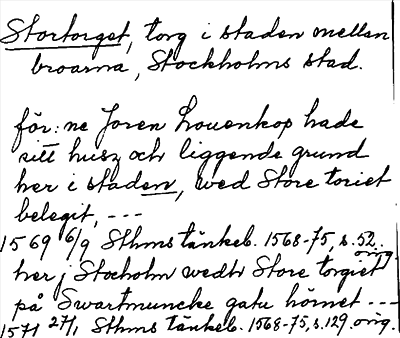 Stortorget, torg i staden mellan
broarna, Stockholms stad.
för: ne Joren Louenkop hade
sitt husz och liggende grund
her i staden, wed Store toriet
belegit, ---
1569 6/9 Sthms tänkeb. 1568-75, s. 52. orig.
her j Stocholm wedh Store torgiet
på Swartmuncke gatu hörnet ---
1571 27/1 Sthms tänkeb. 1568-75, s. 129. orig.